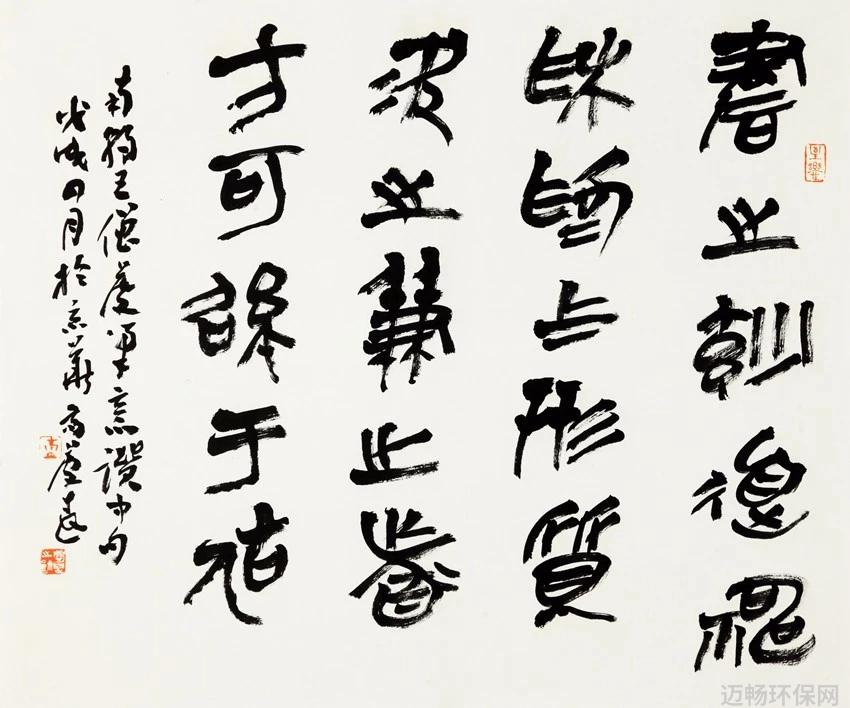 書之妙道神
采為上形質
次之兼之者
方可紹于古人
南朝王僧虔筆意讚中句
戊戌四月於京華
迈畅环保网